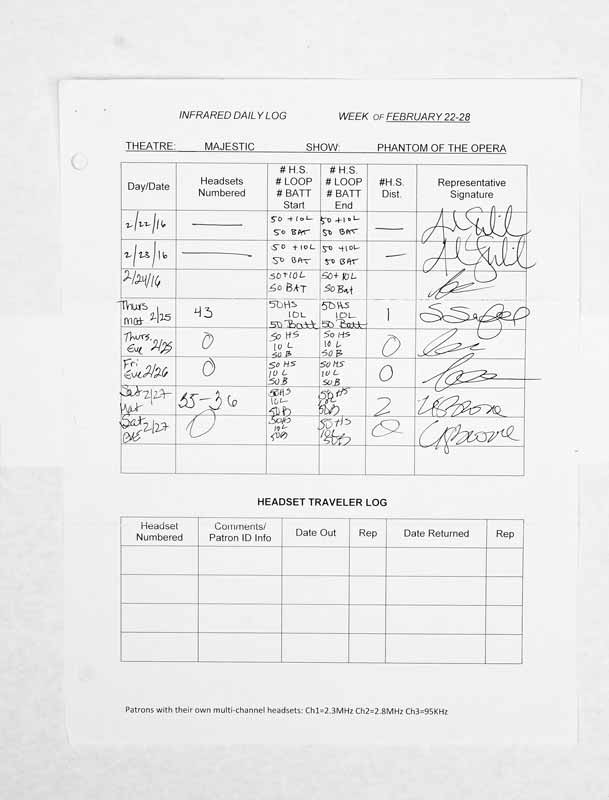 INFRARED DAILY LOG WEEK OF FEBRUARY 22-28
THEATRE: MAJESTIC SHOW: PHANTOM OF THE OPERA
Day/Date
Headsets
Numbered
# H.S.
# LOOP
# BATT
Start
# H.S.
# LOOP
# BATT
End
#H.S.
Dist.
Representative
Signature
2/22/16 — 50 +10L 50 +10L —
50 BAT 50 BAT
2/23/16 — 50 +10L 50 +10L —
50 BAT 50 BAT
2/24/16 50+10L 50+10L
50 BAT 50 Bat
Thurs 50HS 50HS
mat 2/25 43 10L 10L 1
50 Batt 50 Batt
Thurs. 50 HS 50 HS
Eve 2/25 0 10 L 10 L 0
50 B 50 B
Fri 50 HS 50 HS
Eve 2/26 0 10 L 10 L 0
50 B 50 B
Sat 2/27 50HS 50HS
Mat 35-36 10L 10L 2
50B 50B
Sat 2/27 50HS 50HS
0 10L 10L 0
50B 50B
HEADSET TRAVELER LOG
Headset
Numbered
Comments/
Patron ID Info
Date Out
Rep
Date Returned
Rep
Patrons with their own multi-channel headsets: Ch1=2.3MHz Ch2=2.8MHz Ch3=95KHz